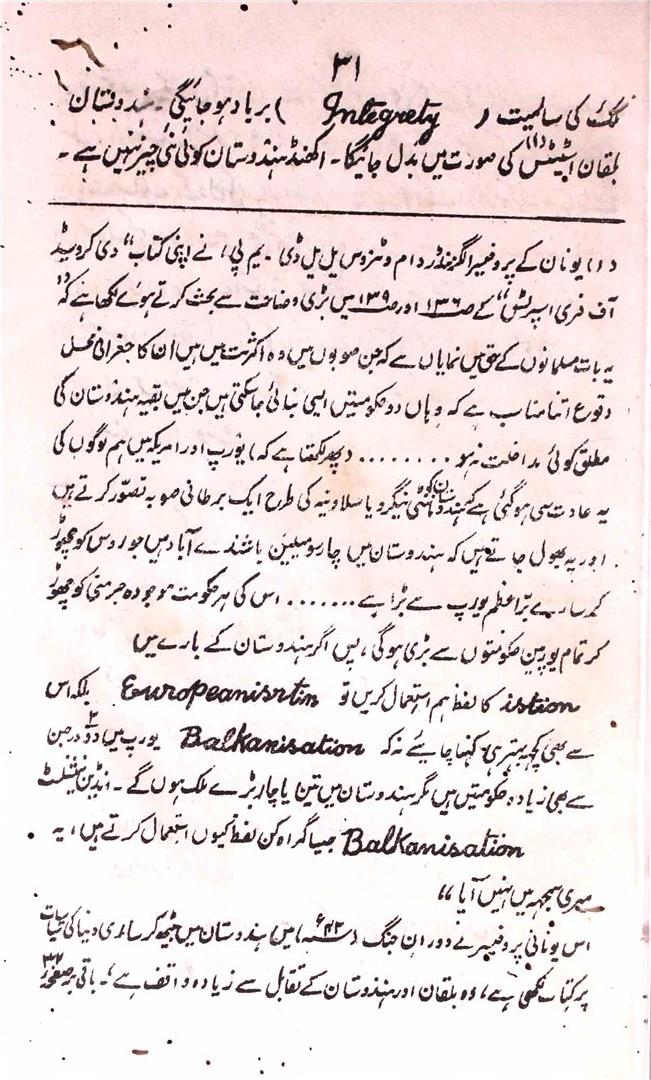 ۳۱
ملک کی سالمیت ( Integrety ) برباد ہوجائیگی۔ ہندوستان
بلقان اسٹیٹس (۱) کی صورت میں بدل جائیگا۔ اکھنڈ ہندوستان کوئی نئی چیز نہیں ہے۔
(۱) یونان کے پروفیسر الگزنڈر دام وٹزوس یل یل ڈی۔ یم پی، نے اپنی کتاب "دی کروسیڈ
آف فری اسپرٹس" کے ص۱۳۶ اور ص۱۳۹ میں بڑی وضاحت سے بحث کرتے ہوئے لکھا ہے کہ "
یہ بات مسلمانوں کے حق میں نمایاں ہے کہ جن صوبوں میں وہ اکثریت میں ہیں ان کا جغرافی محل
وقوع اتنا مناسب ہے کہ وہاں دو حکومتیں ایسی بنائی جاسکتی ہیں جن میں بقیہ ہندوستان کی
مطلق کوئی مداخلت نہ ہو ........ (پھر لکھتا ہے کہ) یورپ اور امریکہ میں ہم لوگوں کی
یہ عادت سی ہوگئی ہے کہ ہندوستان کو مانٹی نیگرو یا سلاونیہ کی طرح ایک برطانی صوبہ تصور کرتے ہیں
اور یہ بھول جاتے ہیں کہ ہندوستان میں چار سو میلین باشندے آباد ہیں جو روس کو چھوڑ
کر سارے براعظم یورپ سے بڑا ہے ....... اس کی ہر حکومت موجودہ جرمنی کو چھوڑ
کر تمام یورپین حکومتوں سے بڑی ہوگی، پس اگر ہندوستان کے بارے میں
istion کا لفظ ہم استعمال کریں تو Europeanisrtin بلکہ اس
سے بھی کچھ بہتر ہی کہنا چاہئے نہ کہ Balkanisation یورپ میں دو ۲ درجن
سے بھی زیادہ حکومتیں ہیں مگر ہندوستان میں تین یا چار بڑے ملک ہوں گے۔ انڈین نیشنلسٹ
Balkanisation جیسا گمراہ کن لفظ کیوں استعمال کرتے ہیں، یہ
میری سمجھ میں نہیں آیا"
اس یونانی پروفیسر نے دوران جنگ (۴۲ء) میں ہندوستان میں بیٹھ کر ساری دنیا کی سیاسیات
پر کتاب لکھی ہے، وہ بلقان اور ہندوستان کے تقابل سے زیادہ واقف ہے۔ باقی بر صفحہ ۳۲